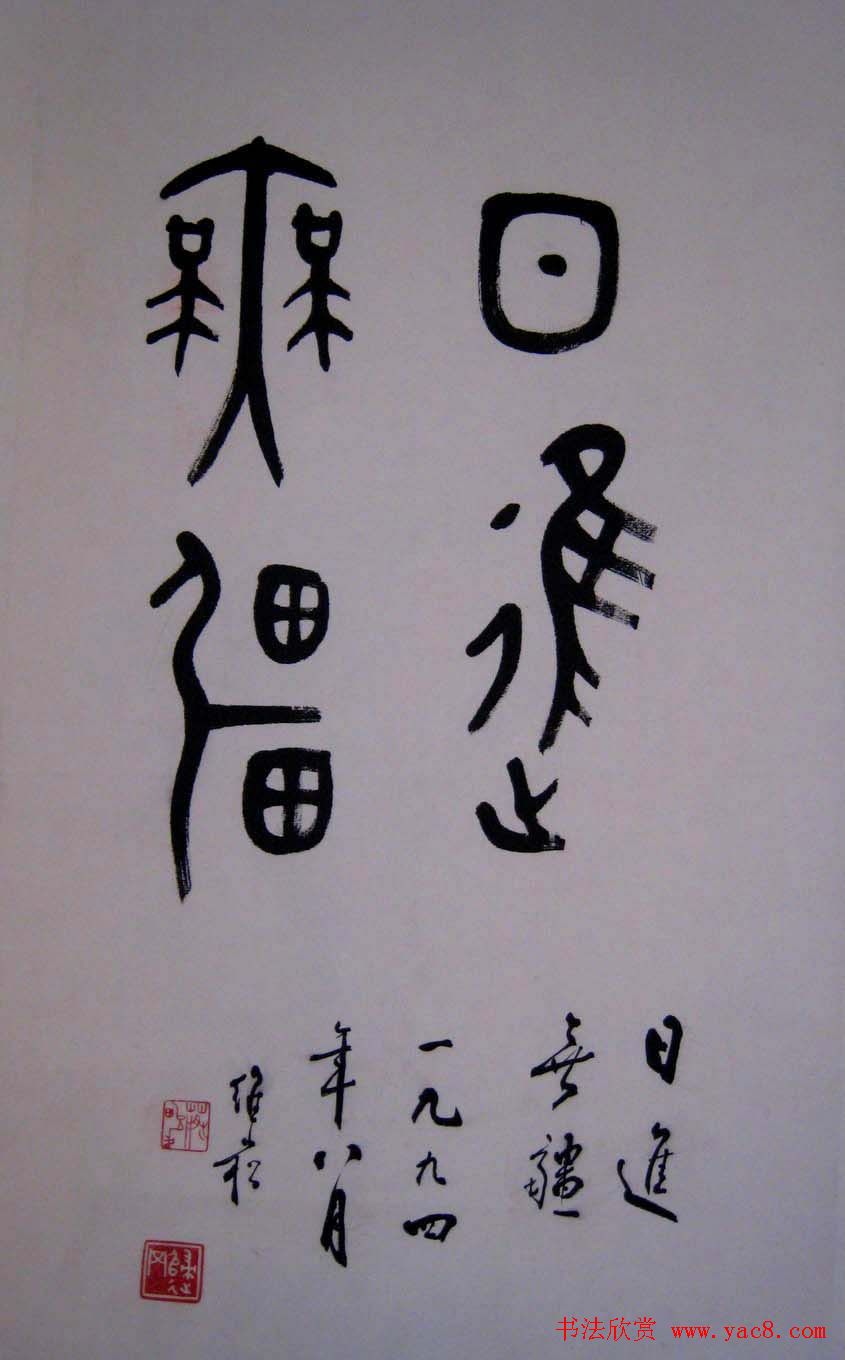 日進
無疆
日進
無疆
一九九四
年八月
维崧
书法欣赏 www.yac8.com